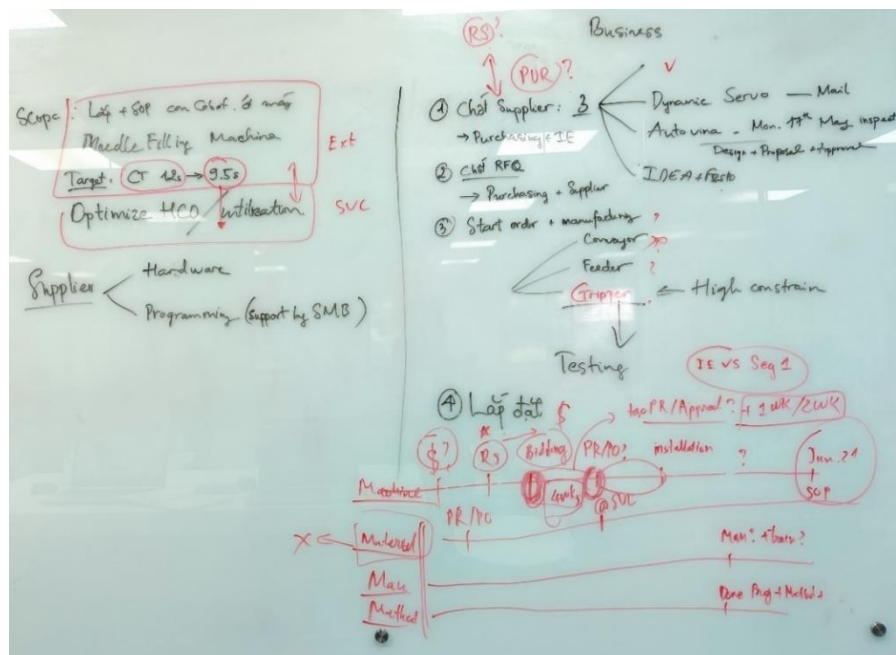 Scope: Lắp + SOP con Cobot ở máy
Needle Filling Machine
Target: CT 12s → 9.5s
Ext
Optimize HCO utilization
SVC
Supplier
Hardware
Programming (Support by SMB)
Business
RS?
PUR?
① Chốt Supplier: 3
→ Purchasing + IE
Dynamic Servo — Mail
Autovina - Mon. 17th May inspect
Design + Proposal + Approval
IDEA + Festo
② Chốt RFQ
→ Purchasing + Supplier
③ Start order + manufacturing ?
Conveyor
Feeder ?
Gripper ← High constrain
Testing
IE vs Seg 1
④ Lắp đặt
$
tạo PR/Approval ? + 1WK/2WK
$? RS Bidding PR/PO? installation ? Jun. 21
Machine
4wks
SOP
PR/PO
@SVC
X ← Material
Man
Man? + train?
Method
Done Prog + Method